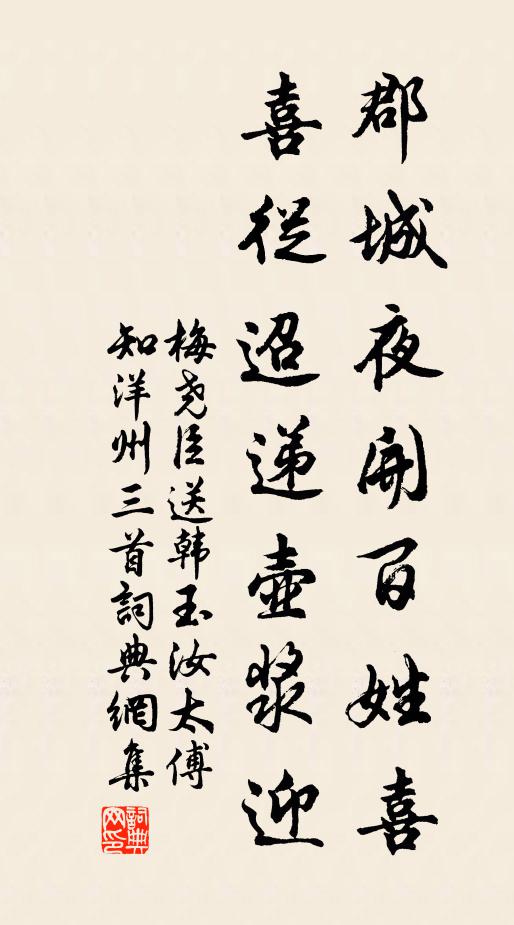 郡城夜開百姓喜
喜從迢遞壺漿迎
梅尧臣送韩玉汝太傅
知洋州三首詞典網集
詞典
网印